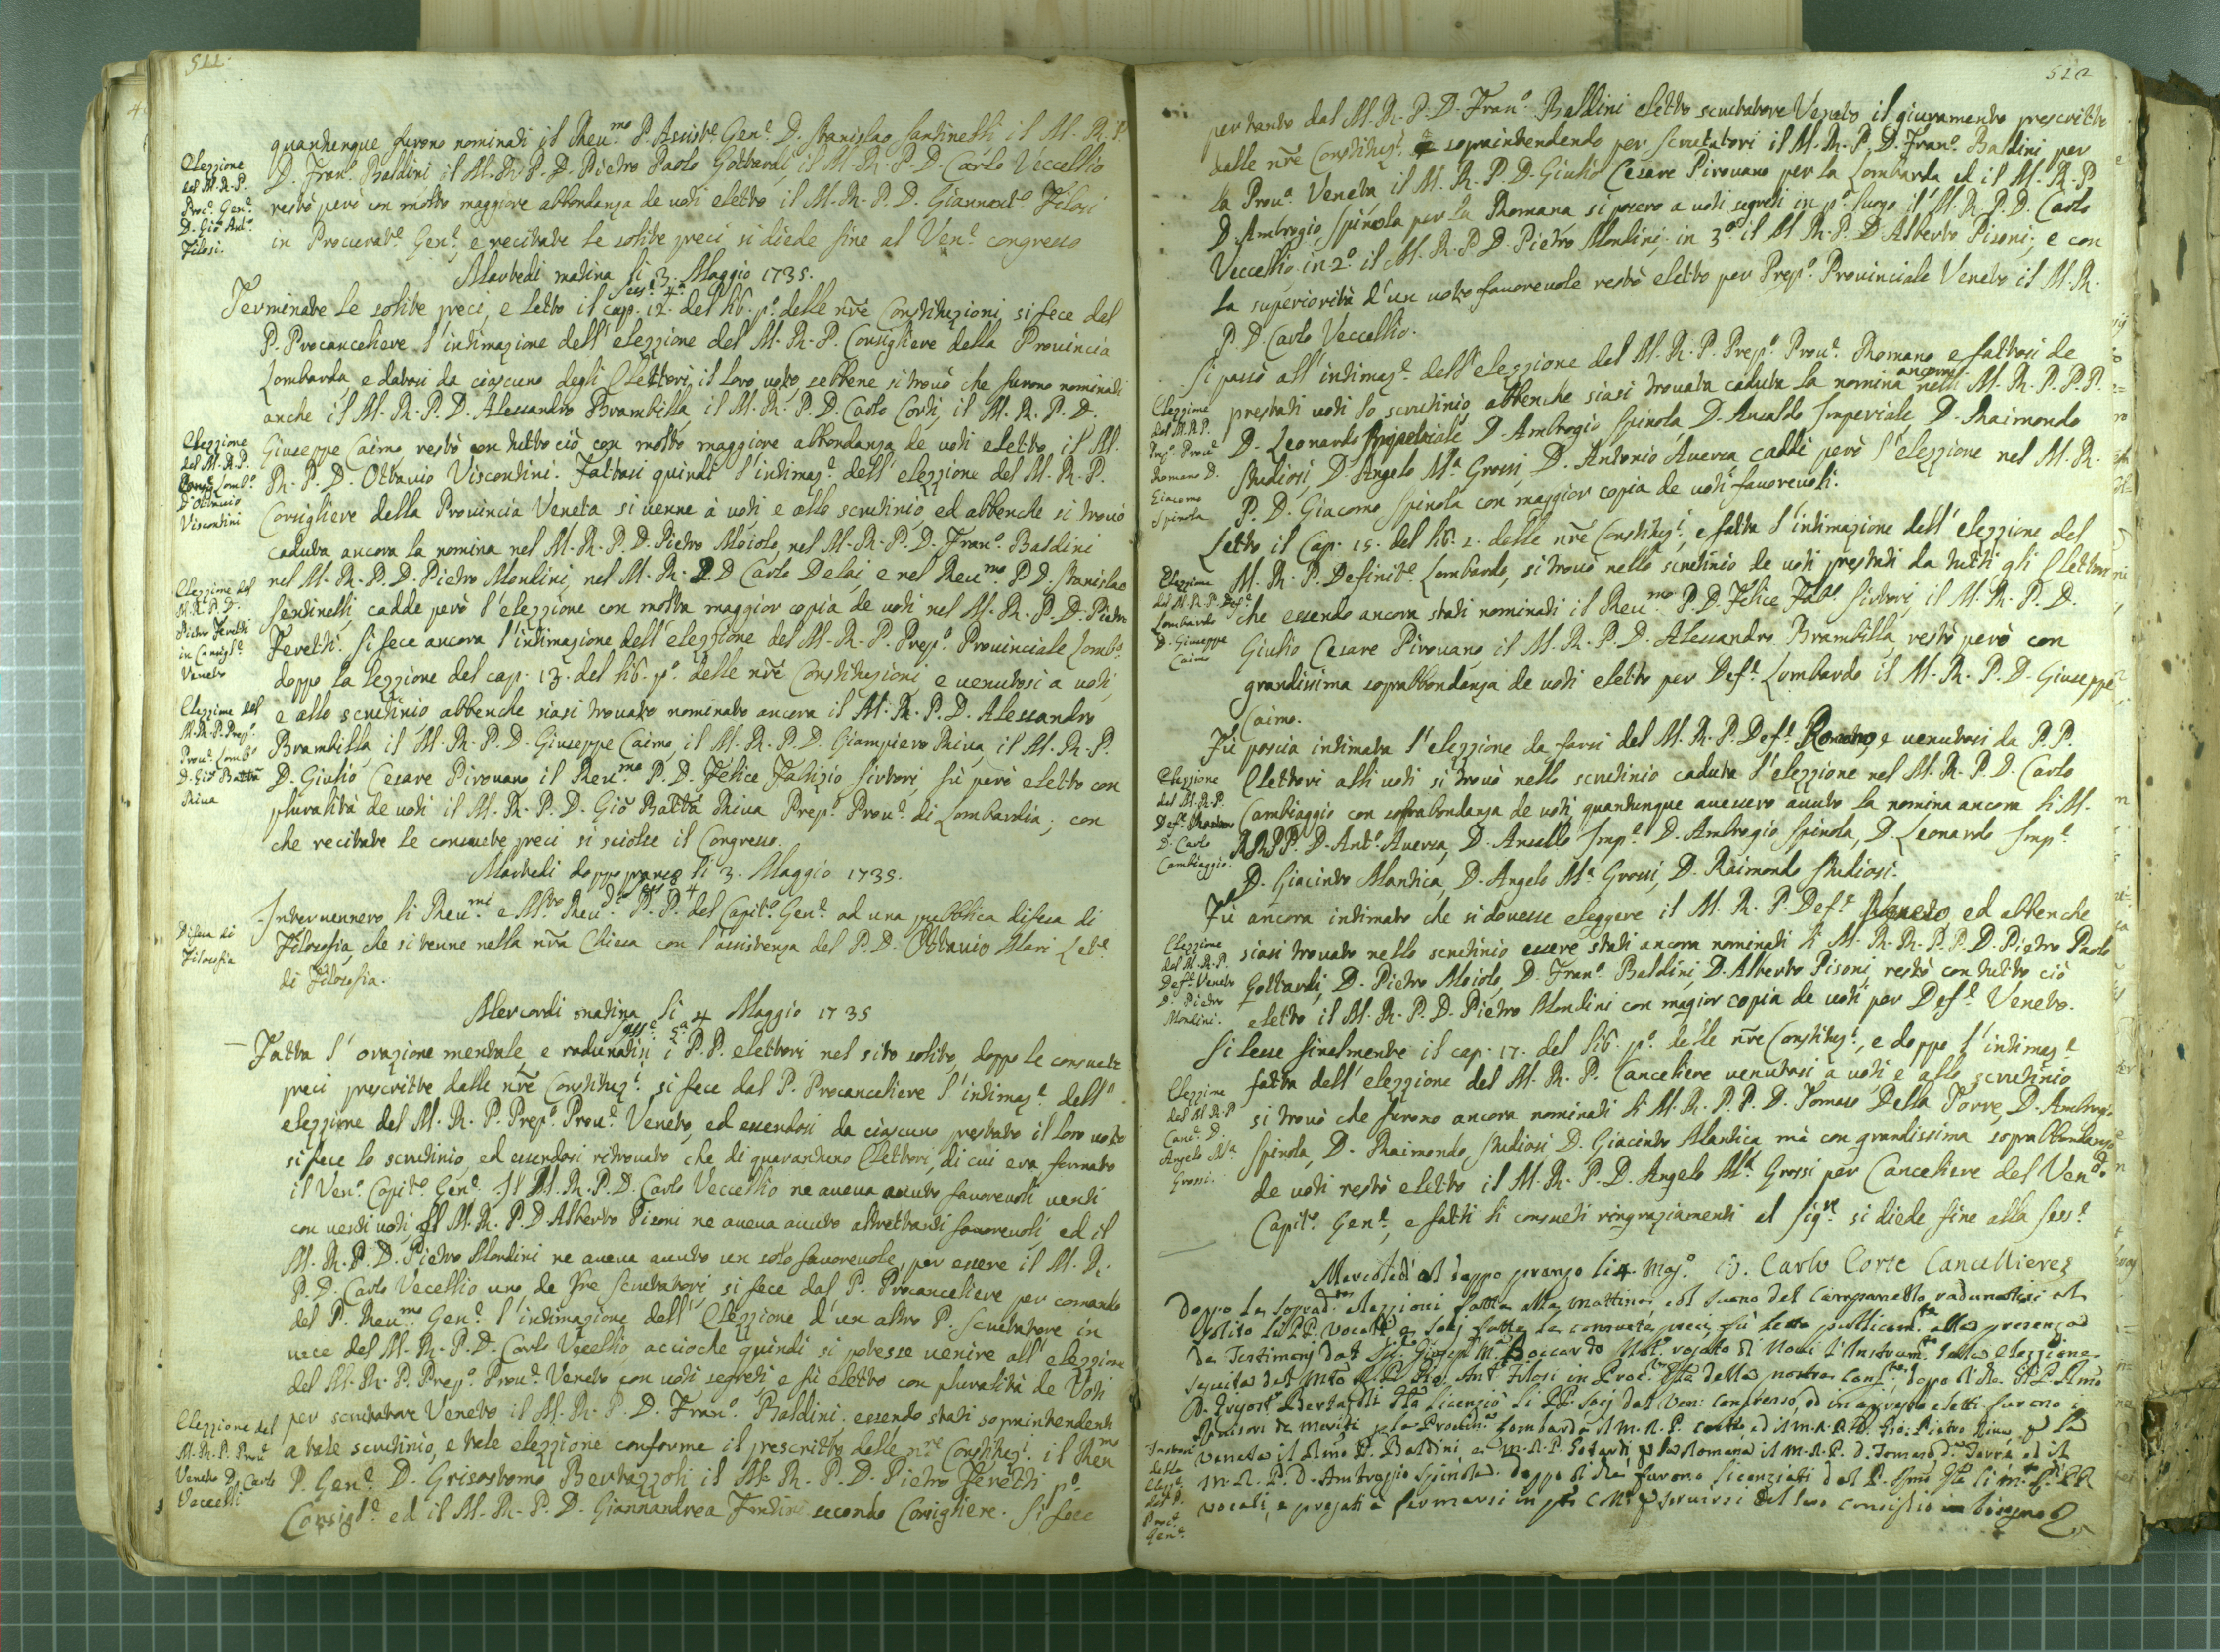 511.
quantunque furono nominati il Reu.mo P. Assist.e Gen.e D. Stanislao Santinelli il M. R. P.
D. Fran.o Baldini il M. R. P. D. Pietro Paolo Gottardi, il M. R. P. D. Carlo Veccellio
restò però con molto maggiore abbondanza de uoti eletto il M. R. P. D. Giannant.o Filosi
in Procurat.e Gen.e e recitate le solite preci si diede fine al Ven.e congresso
Elezzione
del M. R. P.
Proc.e Gen.e
D. Gio: Ant.o
Filosi.
Martedi matina li 3. Maggio 1735.
sess.e 4.a
Terminate le solite preci, e letto il cap. 12. del lib. p.o delle nr̃e Constituzioni, si fece dal
P. Procanceliere l'intimazione dell'elezzione del M. R. P. Consigliere della Prouincia
Lombarda, e datosi da ciascuno degli Elettori il loro uoto, sebbene si trouò che furono nominati
anche il M. R. P. D. Alessandro Brambilla, il M. R. P. D. Carlo Corti, il M. R. P. D.
Giuseppe Caimo restò con tutto ciò con molto maggiore abbondanza de uoti eletto il M.
R. P. D. Ottauio Viscontini. Fattasi quindi l'intimaz.e dell'elezzione del M. R. P.
Elezzione
del M. R. P.
Cons.e Lomb.o
D. Ottauio
Viscontini
Consigliere della Prouincia Veneta si uenne à uoti e allo scrutinio, ed abbenche si trouò
caduta ancora la nomina nel M. R. P. D. Pietro Moiolo, nel M. R. P. D. Fran.o Baldini
nel M. R. P. D. Pietro Mondini, nel M. R. P. D. Carlo Delai, e nel Reu.mo P. D. Stanislao
Santinelli, cadde però l'elezzione con molta maggior copia de uoti nel M. R. P. D. Pietro
Feretti. Si fece ancora l'intimazione dell'elezzione del M. R. P. Prep.o Prouinciale Lomb.o
Elezzione del
M. R. P. D.
Pietro Feretti
in Consigl.e
Veneto
doppo la lezzione del cap. 13. del lib. p.o delle nr̃e Constituzioni, e uenutosi a uoti,
e allo scrutinio abbenche siasi trouato nominato ancora il M. R. P. D. Alessandro
Brambilla il M. R. P. D. Giuseppe Caimo, il M. R. P. D. Giampiero Riua, il M. R. P.
D. Giulio Cesare Pirouano il Reu.mo P. D. Felice Fabrizio Sirtori, fù però eletto con
pluralità de uoti il M. R. P. D. Gio Batt̃a Riua Prep.o Prou.e di Lombardia; con
che recitate le consuete preci si sciolse il Congresso.
Elezzione del
M. R. P. Prep.o
Prou.e Lomb.o
D. Gio: Batt̃a
Riua
Martedi doppo pranzo li 3. Maggio 1735.
Interuennero li Reu.mi e M.to Reu.di P. P. del Capit.o Gen.e ad una pubblica difesa di
Filosofia, che si tenne nella nr̃a Chiesa con l'assistenza del P. D. Ottauio Mari Let.e
di Filosofia.
Difesa di
Filosofia
Mercordi matina li 4 Maggio 1735
sess.e 5.a
Fatta l'orazione mentale, e radunatisi i P. P. elettori nel sito solito, doppo le consuete
preci prescritte dalle nr̃e Constituz.i si fece dal P. Procanceliere l'intimaz.e dell'
elezzione del M. R. P. Prep.o Prou.e Veneto, ed essendosi da ciascuno prestato il loro uoto
si fece lo scrutinio, ed essendosi ritrouato che di quarantuno Elettori, di cui era formato
il Ven.e Capit.o Gen.e. Il M. R. P. D. Carlo Veccellio ne aueua auuto fauoreuoli uenti
con uenti uoti, il M. R. P. D. Alberto Pisoni ne aueua auuto altrettanti fauoreuoli, ed il
M. R. P. D. Pietro Mondini ne aueua auuto un solo fauoreuole, per essere il M. R.
P. D. Carlo Vecellio uno de tre scrutatori si fece dal P. Procanceliere per comando
del P. Reu.mo Gen.e l'intimazione dell'Elezzione d'un altro P. Scrutatore in
uece del M. R. P. D. Carlo Vecellio, accioche quindi si potesse uenire all'elezzione
del M. R. P. Prep.o Prou.e Veneto con uoti segreti, e fù eletto con pluralità de Voti
per scrutatore Veneto il M. R. P. D. Fran.o Baldini: essendo stati sopraintendenti
a tale scrutinio, e tale elezzione conforme il prescritto delle nr̃e Constituz.i il Reu.mo
P. Gen.e D. Grisostomo Bertazzoli il M. R. P. D. Pietro Feretti p.o
Consigl.e ed il M. R. P. D. Giannandrea secondo Consigliere. Si fece
Elezzione del
M. R. P. Prou.e
Veneto D. Carlo
Veccelli
512
pertanto dal M. R. P. D. Fran.o Baldini eletto scrutatore Veneto il giuramento prescritto
dalle nr̃e Constituz.i e sopraintendendo per scrutatori il M. R. P. D. Fran.o Baldini per
la Prou.a Veneta, il M. R. P. D. Giulio Cesare Pirouano per la Lombarda ed il M. R. P.
D. Ambrogio Spinola per la Romana si posero a uoti segreti in p.o luogo il M. R. P. D. Carlo
Veccellio, in 2.o il M. R. P. D. Pietro Mondini, in 3.o il M. R. P. D. Alberto Pisoni; e con
la superiorità d'un uoto fauoreuole restò eletto per Prep.o Prouinciale Veneto il M. R.
P. D. Carlo Veccellio.
Si passò all'intimaz.e dell'elezzione del M. R. P. Prep.o Prou.e Romano e fattosi de
prestati uoti lo scrutinio, abbenche siasi trouata caduta la nomina ancora nelli M. R. P. P. P.
D. Leonardo Imperiale D. Ambrogio Spinola, D. Ansaldo Imperiale, D. Raimondo
Studiosi, D. Angelo M.a Grossi, D. Antonio Auersa caddè però l'elezzione nel M. R.
P. D. Giacomo Spinola con maggior copia de uoti fauoreuoli.
Elezzione
del M. R. P.
Prep.o Prou.e
Romano D.
Giacomo
Spinola
Letto il Cap. 15. del lib. 1. delle nr̃e Constituz.i, e fatta l'intimazione dell'elezzione del
M. R. P. Definit.e Lombardo, si trouò nello scrutinio de uoti prestati da tutti gli Elettori
che essendo ancora stati nominati il Reu.mo P. D. Felice Fab.o Sirtori, il M. R. P. D.
Giulio Cesare Pirouano il M. R. P. D. Alessandro Brambilla, restò però con
grandissima soprabbondanza de uoti eletto per Def.e Lombardo il M. R. P. D. Giuseppe
Caimo.
Elezzione
del M. R. P. Def.e
Lombardo
D. Giuseppe
Caimo
Fù poscia intimata l'elezzione da farsi del M. R. P. Def.e Romano, e uenutosi da P. P.
Elettori alli uoti si trouò nello scrutinio caduta l'elezzione nel M. R. P. D. Carlo
Cambiaggio con soprabondanza de uoti, quantunque auessero auuto la nomina ancora li M.
R. R. P. P. D. Ant.o Auersa, D. Ansaldo Imp.e D. Ambrogio Spinola, D. Leonardo Imp.e
D. Giacinto Mantica, D. Angelo M.a Grossi, D. Raimondo Studiosi.
Elezzione
del M. R. P.
Def.e Romano
D. Carlo
Cambiaggio.
Fù ancora intimato che si douesse eleggere il M. R. P. Def.e Veneto, ed abbenche
siasi trouato nello scrutinio essere stati ancora nominati li M. R. R. P. P. D. Pietro Paolo
Gottardi, D. Pietro Moiolo, D. Fran.o Baldini, D. Alberto Pisoni, restò con tutto ciò
eletto il M. R. P. D. Pietro Mondini con magior copia de uoti per Def.e Veneto.
Elezzione
del M. R. P.
Def.e Veneto
D. Pietro
Mondini.
Si lesse finalmente il cap. 17. del lib. p.o delle nr̃e Constituz.i, e doppo l'intimaz.e
fatta dell'elezzione del M. R. P. Canceliere uenutosi à uoti e allo scrutinio
si trouò che furono ancora nominati li M. R. P. P. D. Tomaso Della Torre, D. Ambrogio
Spinola, D. Raimondo Studiosi D. Giacinto Mantica, mà con grandissima soprabbondanza
de uoti restò eletto il M. R. P. D. Angelo M.a Grossi per Canceliere del Ven.do
Capit.o Gen.e, e fatti li consueti ringraziamenti al Sig.re si diede fine alla sess.e
Elezzione
del M. R. P.
Canc.e D.
Angelo M.a
Grossi.
Mercoledi al doppo pranzo li 4. Mag.o D. Carlo Corte Cancelliere
Doppo le soprad.e elezzioni fatte alla mattina, al suono del campanello radunatisi al
solito li PP. Vocali e Socj fatte le consuete preci, fù letto publicam.te alla presenza
de Testimonj dal Sig.r Giusep. M.a Boccardo Not.o rogato di Noui l'Instrum.to della elezzione
seguita del M.to R. P. Gio. Ant.o Filosi in Proc.re della nostra Cong.ne doppo di che il P. Rmo
D. Grisost.o Bertazzoli licenziò li PP. Socj dal Ven: congresso, ed in appresso eletti furono i
Reuisori de meriti per la Prouin.a Lombarda il M. R. P. Corte, ed il M. R. P. D. Gio: Pietro Riua, per la
Veneta il Rmo P. Baldini, e M. R. P. Gotardi, per la Romana il M. R. P. D. Tomaso d. Torre, ed il
M. R. P. D. Ambrogio Spinola. Doppo di che furono licenziati dal P. Rmo li M. R. PP.
vocali, e pregati a fermarsi in Coll.o per seruirsi del suo consiglio in bisogno
del P.
Proc.e
Gen.e